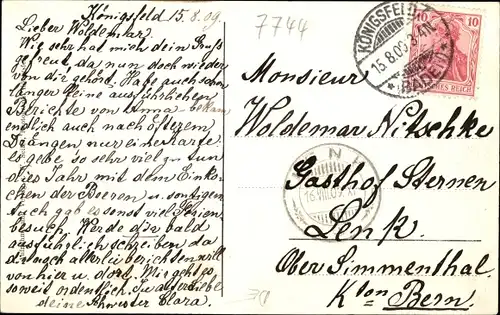 Königsfeld 15.8.09.
Lieber Woldemar.
Wie sehr hat mich dein Gruß
gefreut, da nun doch wieder
von dir gehört. Habe auch schon
länger keine ausführlichen
Berichte von Anna bekam
endlich auch nach öfterem
Drängen nur eine Karte.
Es gebe so sehr viel zu tun
dies Jahr mit dem Einko-
chen der Beeren u. sonstigen.
Auch gab es sonst viel Ferien
besuch. Werde dir bald
ausführlich schreiben da
du doch allerlei berichten willst
von hier u. dort. Mir geht es
soweit ordentlich. In alter Liebe
deine Schwester Clara.
7744
KÖNIGSFELD
15.8.09. 3-4N.
(BADEN)
10 10
DEUTSCHES REICH
Monsieur
Woldemar Nitschke
LENK
16.VIII.09
Gasthof Sternen
Lenk.
Ober Simmenthal
Kton Bern.
DE